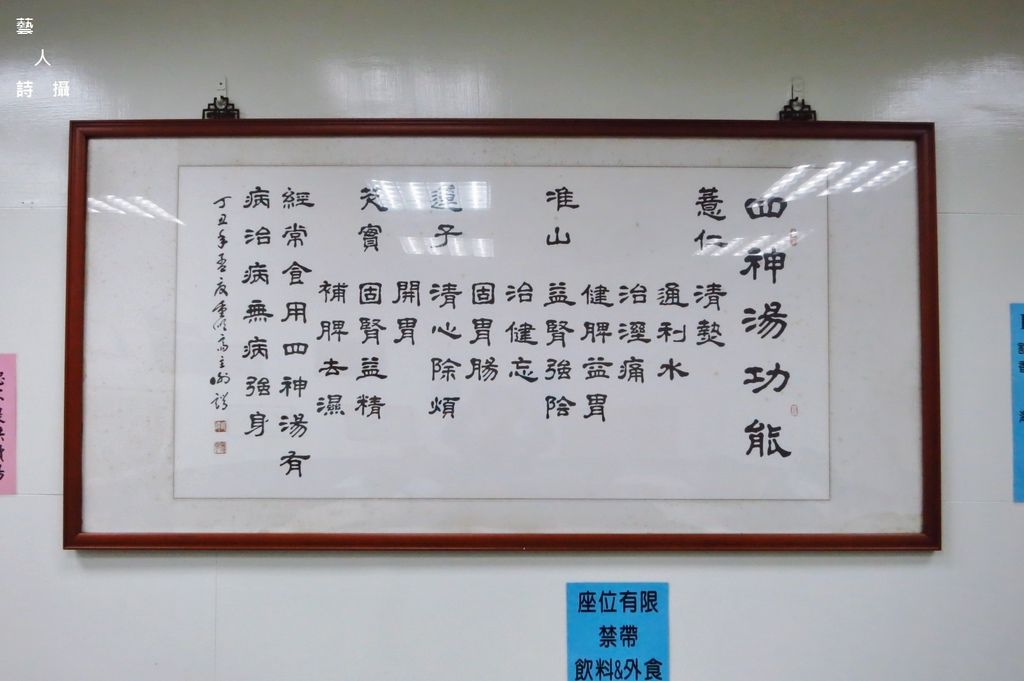 藝
人
詩攝
四神湯功能
薏仁
清熱
通利水
治溼痛
健脾益胃
淮山
益腎強陰
治健忘
固胃腸
蓮子
清心除煩
開胃
芡實
固腎益精
補脾去濕
經常食用四神湯有
病治病無病強身
座位有限
禁帶
飲料&外食